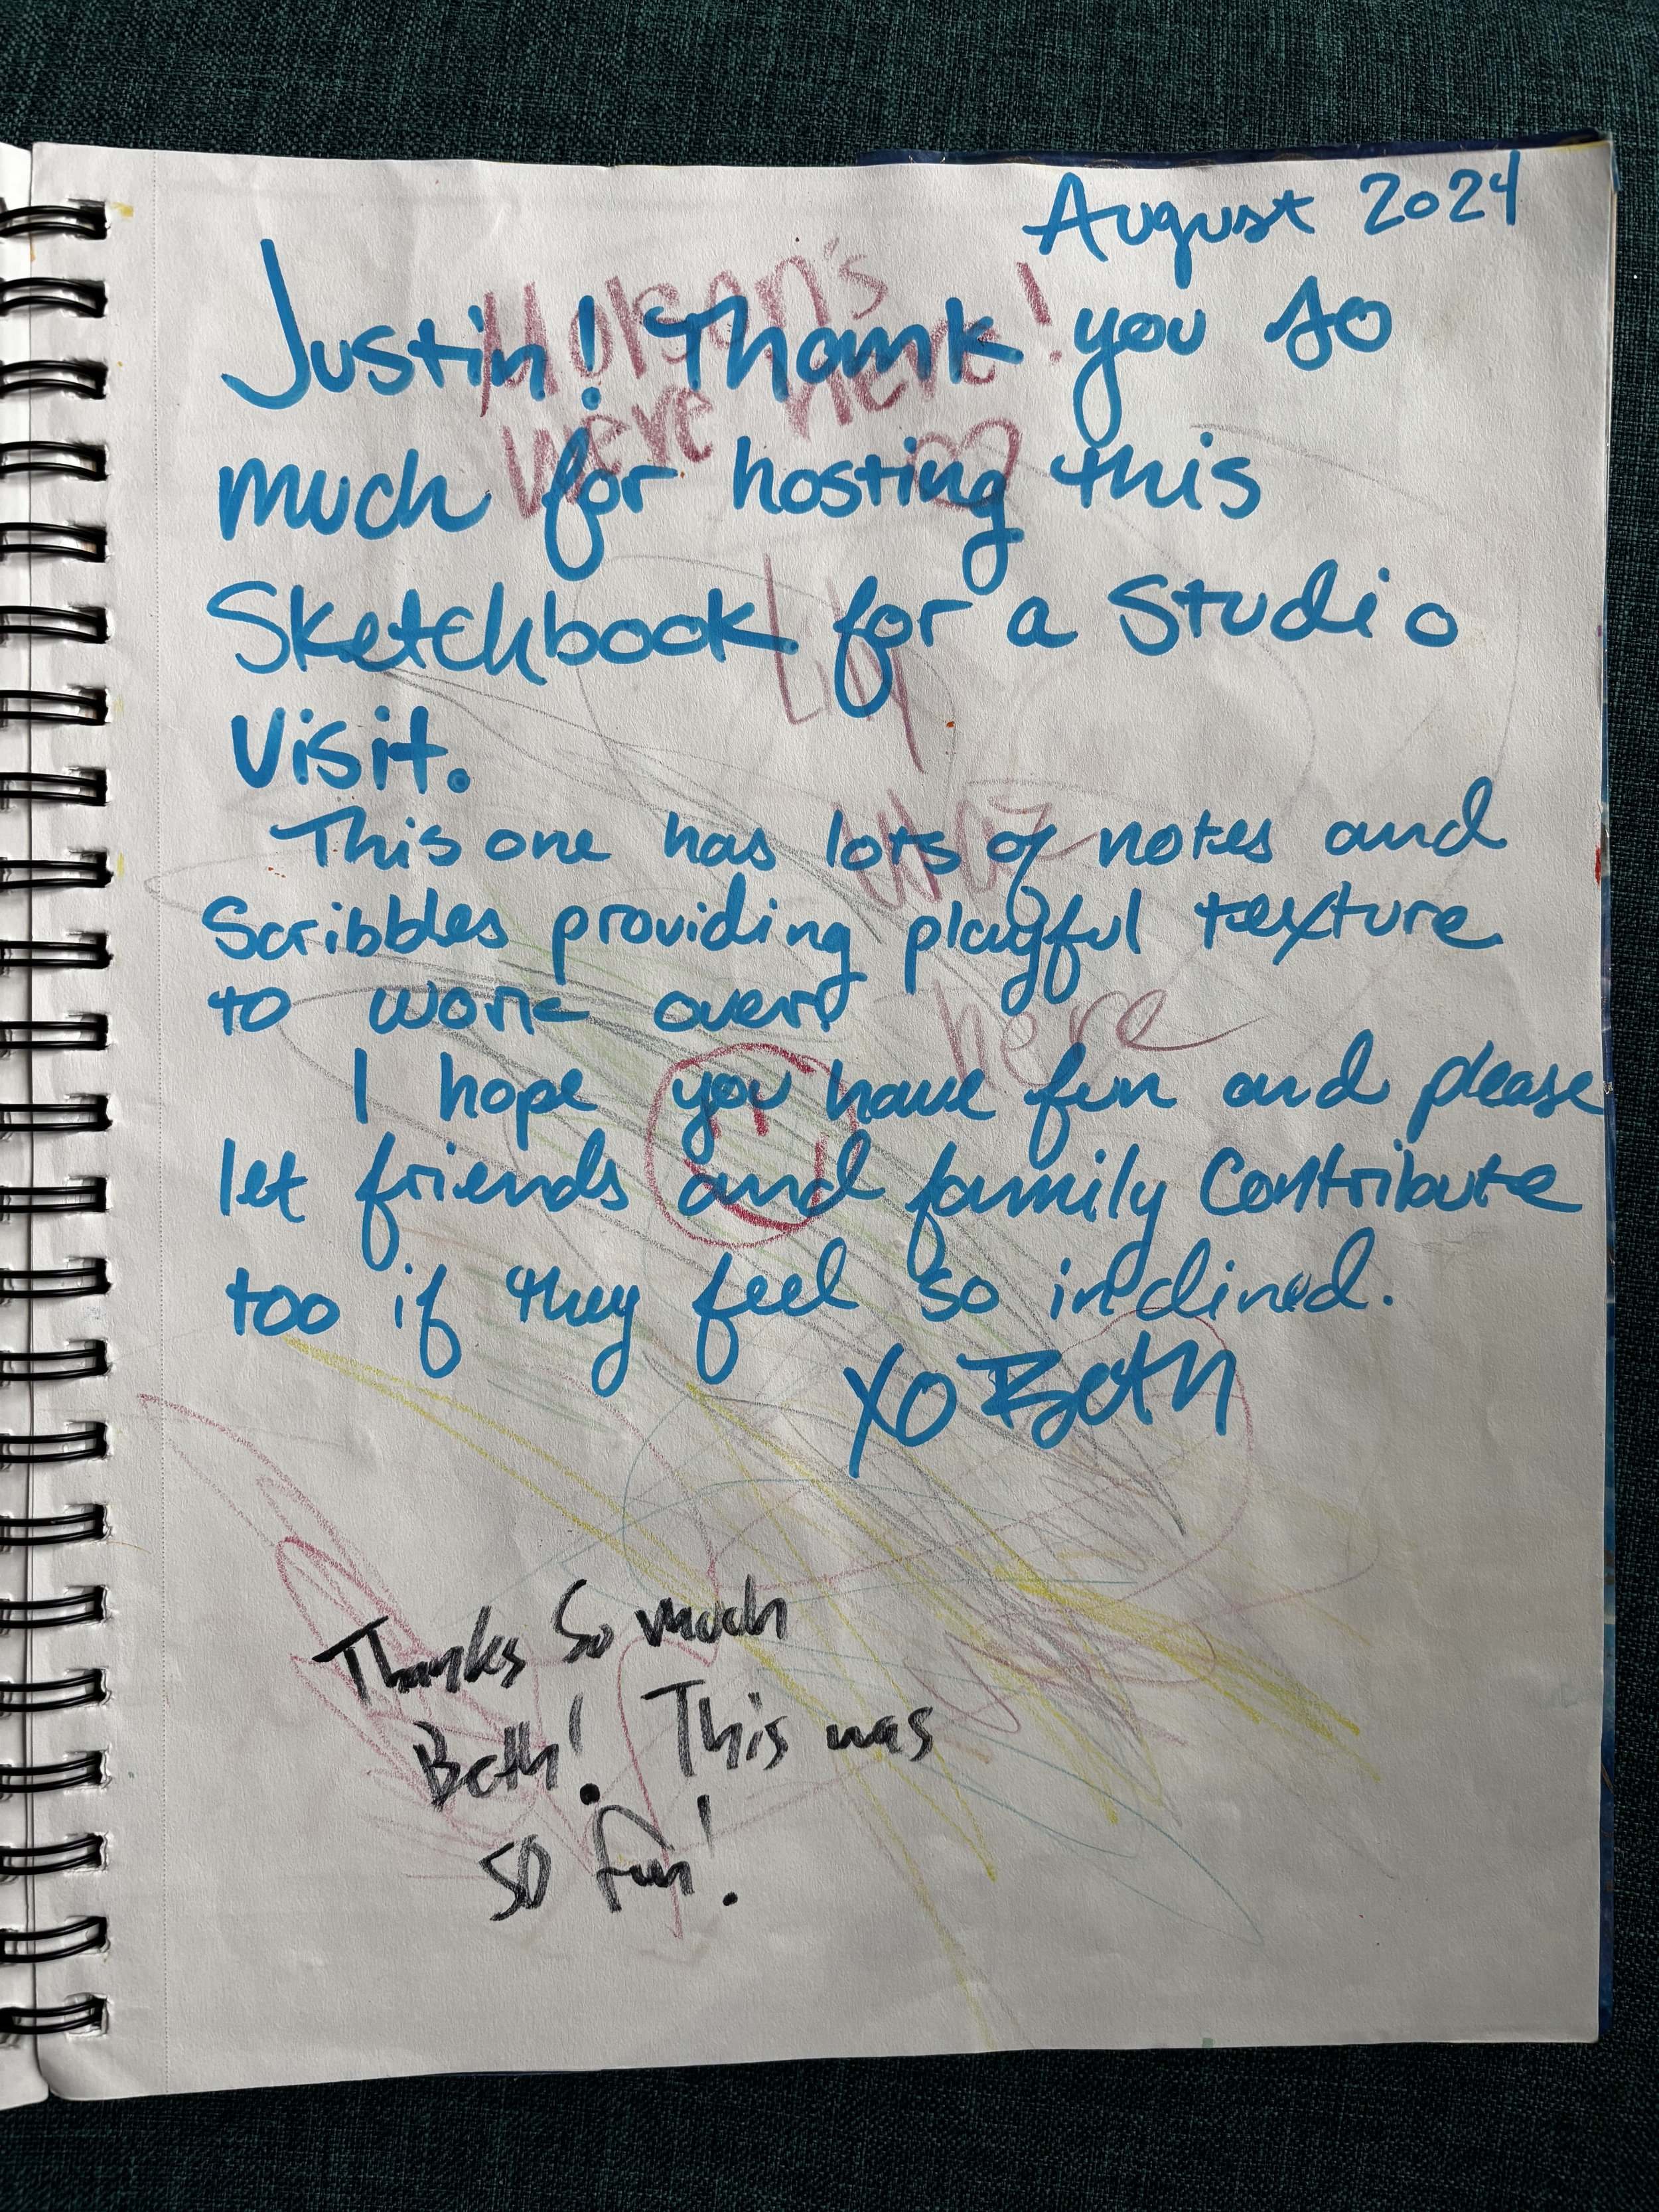 August 2024
Justin! Thank you so
much for hosting this
Sketchbook for a Studio
Visit.
This one has lots of notes and
Scribbles providing playful texture
to work over!
I hope you have fun and please
let friends and family Contribute
too if they feel so inclined.
XO Beth
Molson's
were here!
Lily
waz
here
Thanks So much
Beth! This was
so fun!